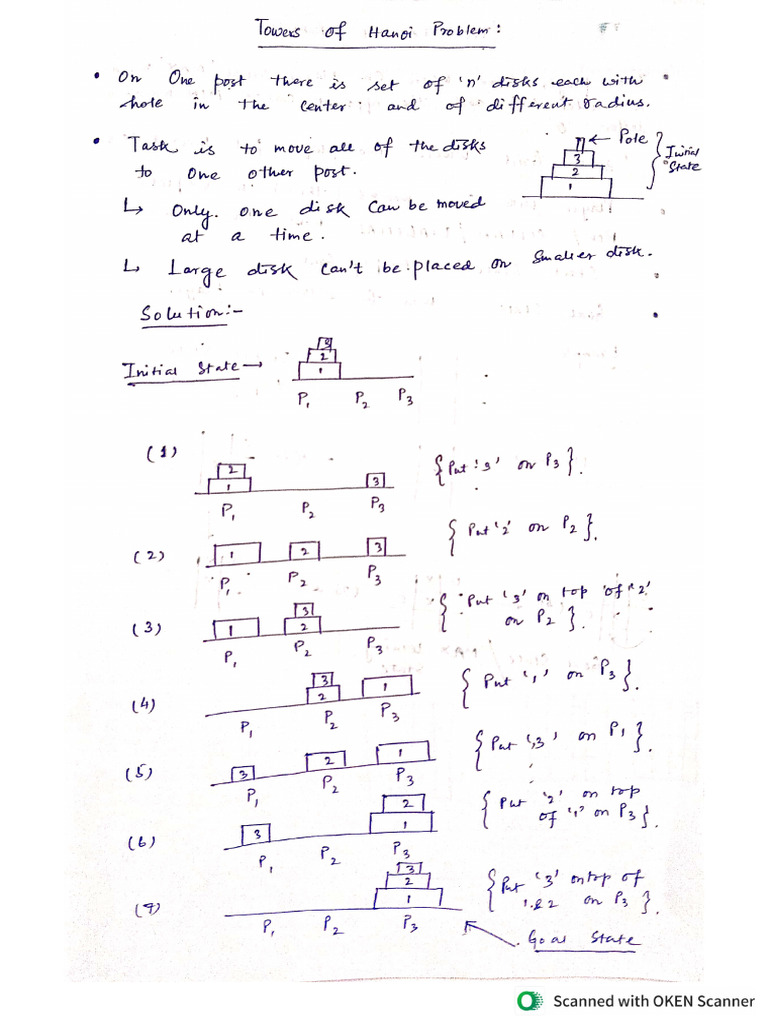 Towers of Hanoi Problem:
• On One post there is set of 'n' disks each with
hole in the center and of different radius.
• Task is to move all of the disks
to one other post.
↳ Only one disk can be moved
at a time.
↳ Large disk can't be placed on smaller disk.
← Pole
3
2
1
Initial
State
Solution:-
Initial State →
3
2
1
P1 P2 P3
(1)
2
1 3
P1 P2 P3
{Put '3' on P3}.
(2)
1 2 3
P1 P2 P3
{Put '2' on P2}.
(3)
3
1 2
P1 P2 P3
{Put '3' on top of '2'
on P2}.
(4)
3
2 1
P1 P2 P3
{Put '1' on P3}.
(5)
3 2 1
P1 P2 P3
{Put '3' on P1}.
(6)
2
3 1
P1 P2 P3
{Put '2' on top
of '1' on P3}.
(7)
3
2
1
P1 P2 P3
{Put '3' on top of
1 & 2 on P3}.
Goal State
Scanned with OKEN Scanner